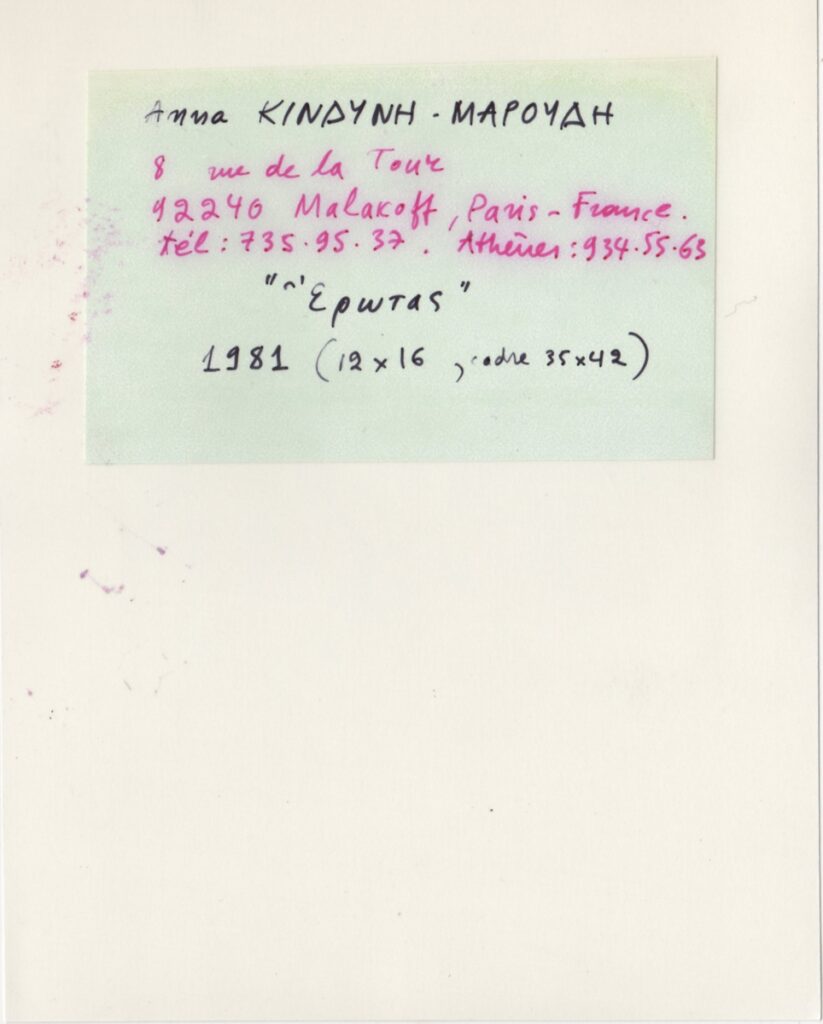 Anna ΚΙΝΔΥΝΗ - ΜΑΡΟΥΔΗ
8 rue de la Tour
92240 Malakoff, Paris - France.
tél : 735.95.37. Athènes : 934.55.63
"Έρωτας"
1981 (12 x 16, cadre 35x42)